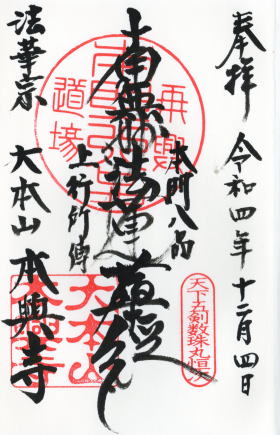 奉拝 令和四年十二月四日
天下五剣数珠丸恒次
本門八品
南無妙法蓮華経
上行所傳
法華宗 大本山 本興寺
再興
道場
大本山
本興寺